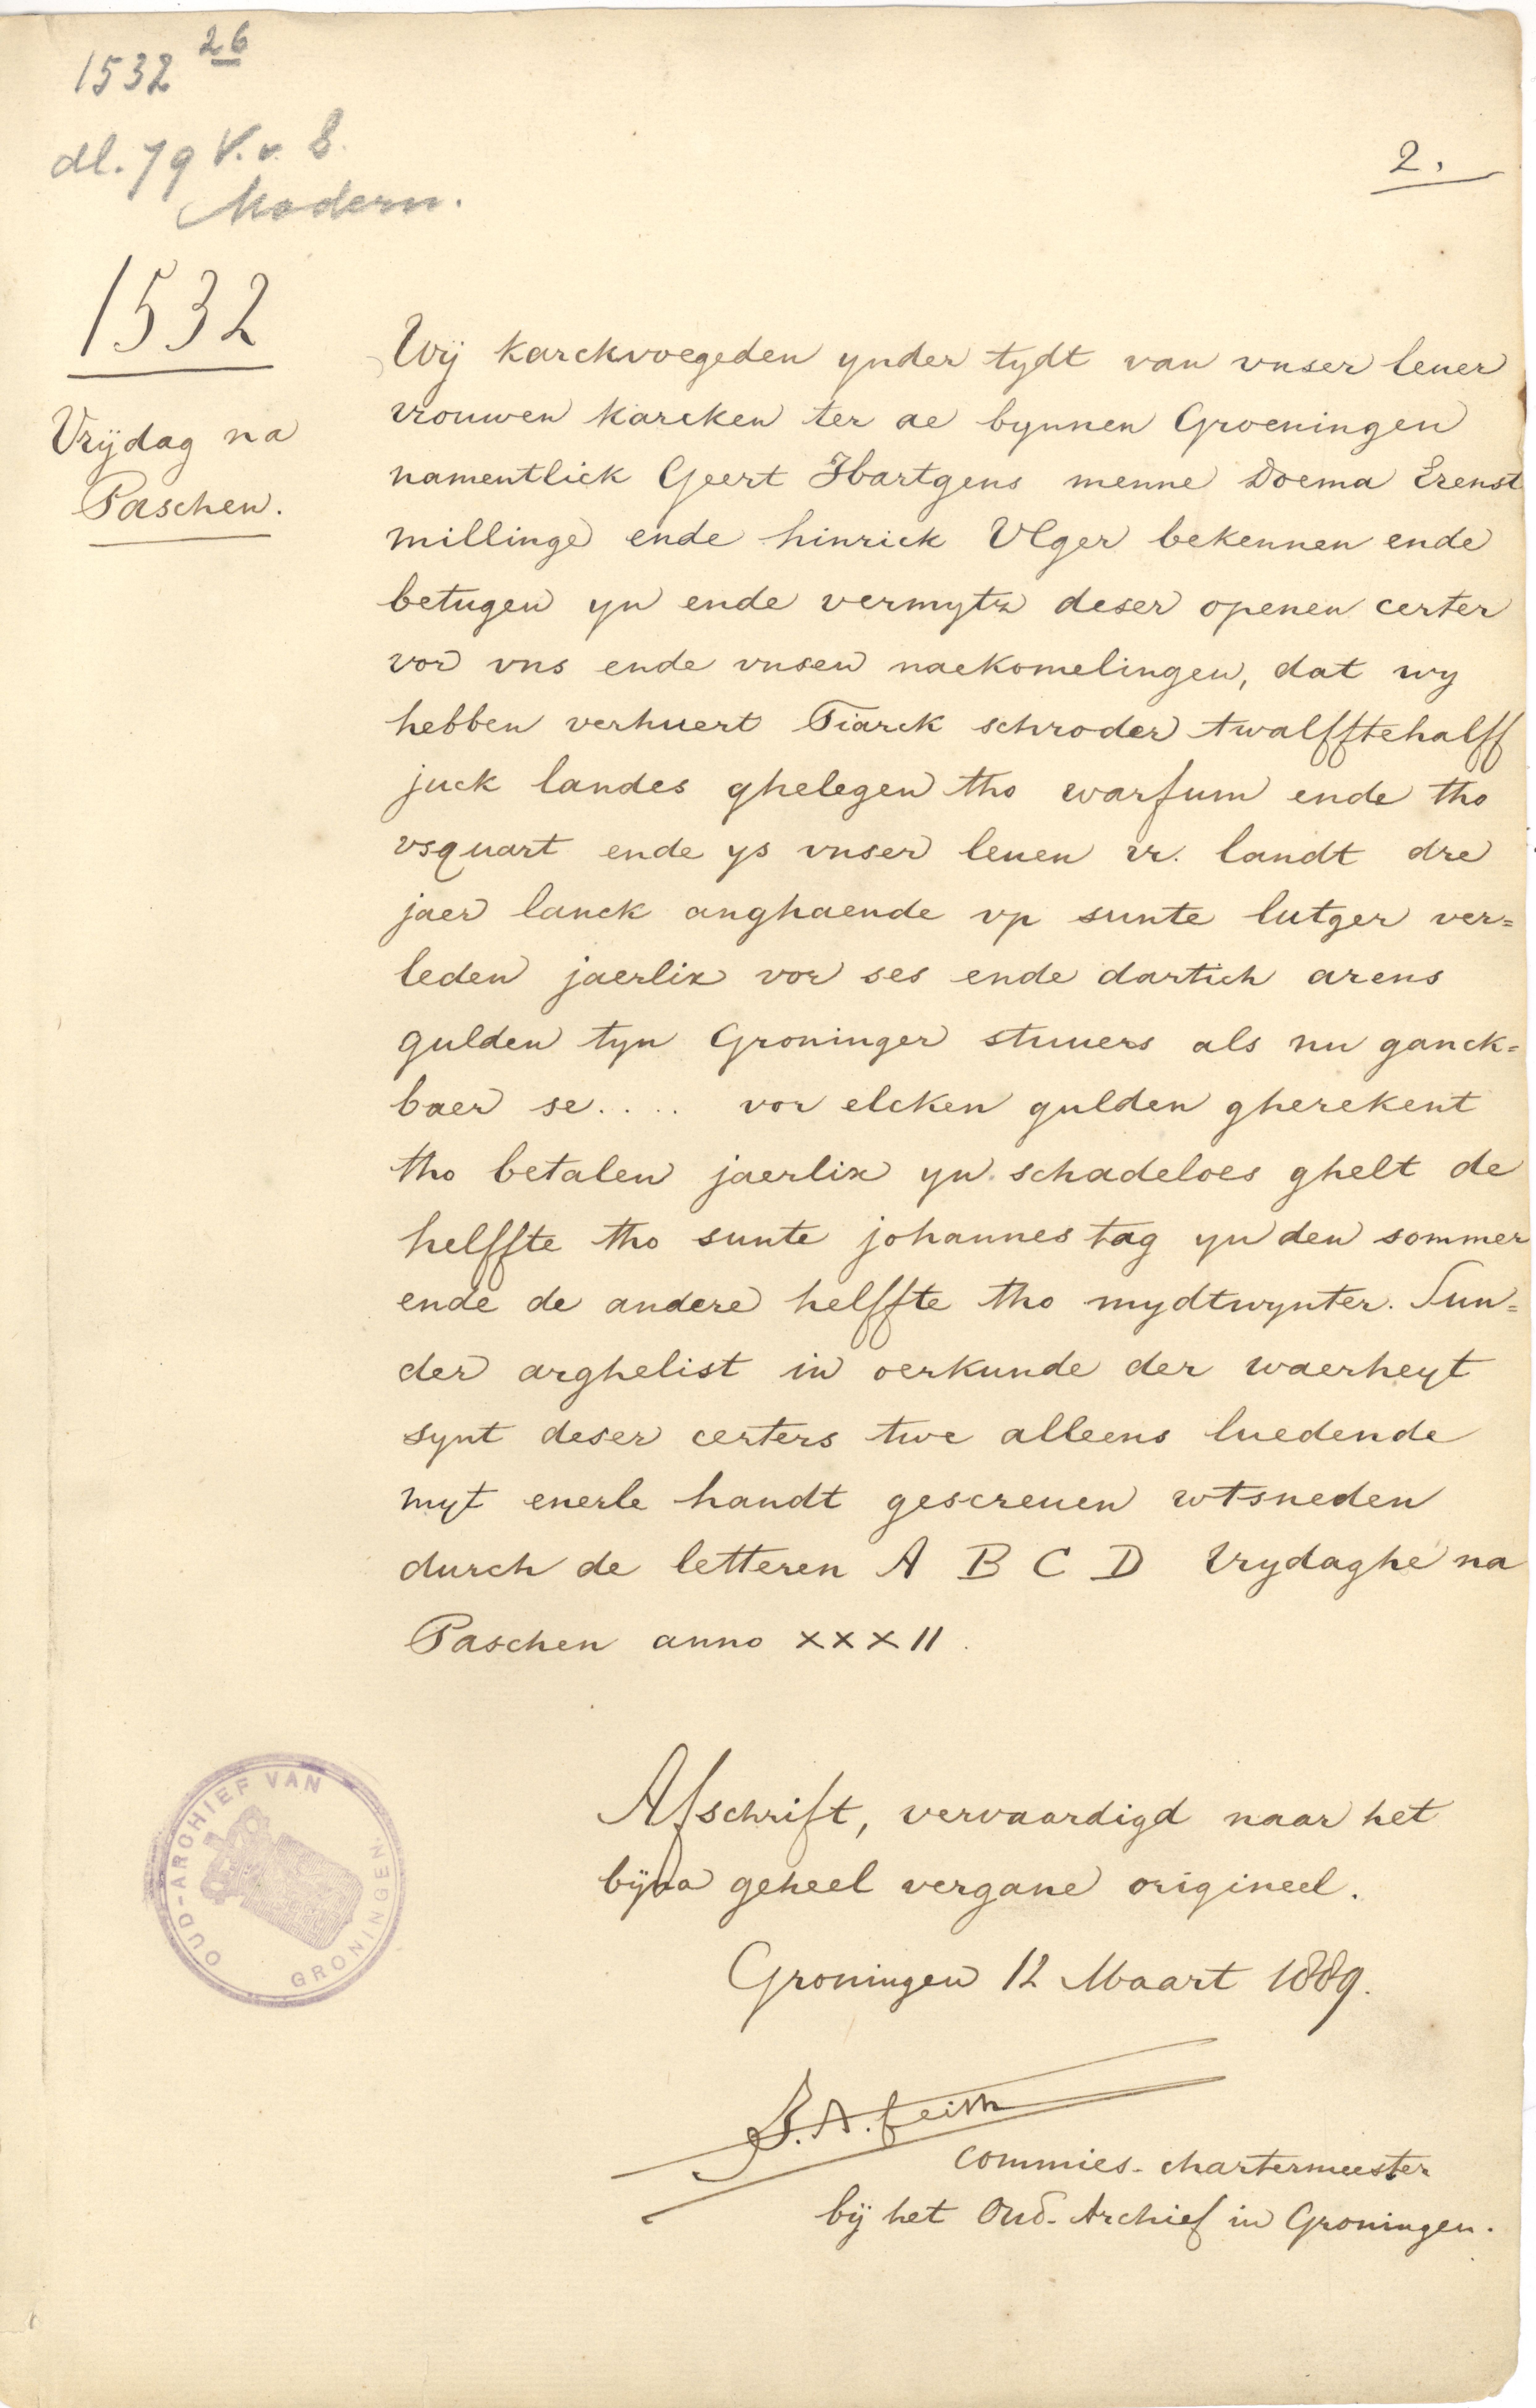 1532 26
dl. 79 V. v. S.
Modern.
2.
1532
Vrijdag na
Paschen.
Wij karckvoegeden ynder tydt van vnser leuer
vrouwen karcken ter ae bynnen Groeningen
namentlick Geert Hartgens menne Doema Erenst
millinge ende hinrick Vlger bekennen ende
betugen yn ende vermytz deser openen certer
vor vns ende vnsen naekomelingen, dat wy
hebben verhuert Tiarck schroder twalfftehalff
juck landes ghelegen tho warfum ende tho
vsquart ende ys vnser leuen vr. landt dre
jaer lanck anghaende vp sunte lutger ver=
leden jaerlix vor ses ende dartich arens
gulden tyn Groninger stuuers als nu ganck=
baer se.... vor elcken gulden gherekent
tho betalen jaerlix yn schadeloes ghelt de
helffte tho sunte johannes tag yn den sommer
ende de andere helffte tho mydtwynter. Sun=
der arghelist in oerkunde der waerheyt
synt deser certers twe alleens luedende
myt enerle handt gescreuen wtsneden
durch de letteren A B C D Vrydaghe na
Paschen anno XXXII.
Afschrift, vervaardigd naar het
bijna geheel vergane origineel.
Groningen 12 Maart 1889.
J. A. Feith
commies-chartermeester
bij het Oud-Archief in Groningen.
OUD-ARCHIEF VAN
GRONINGEN